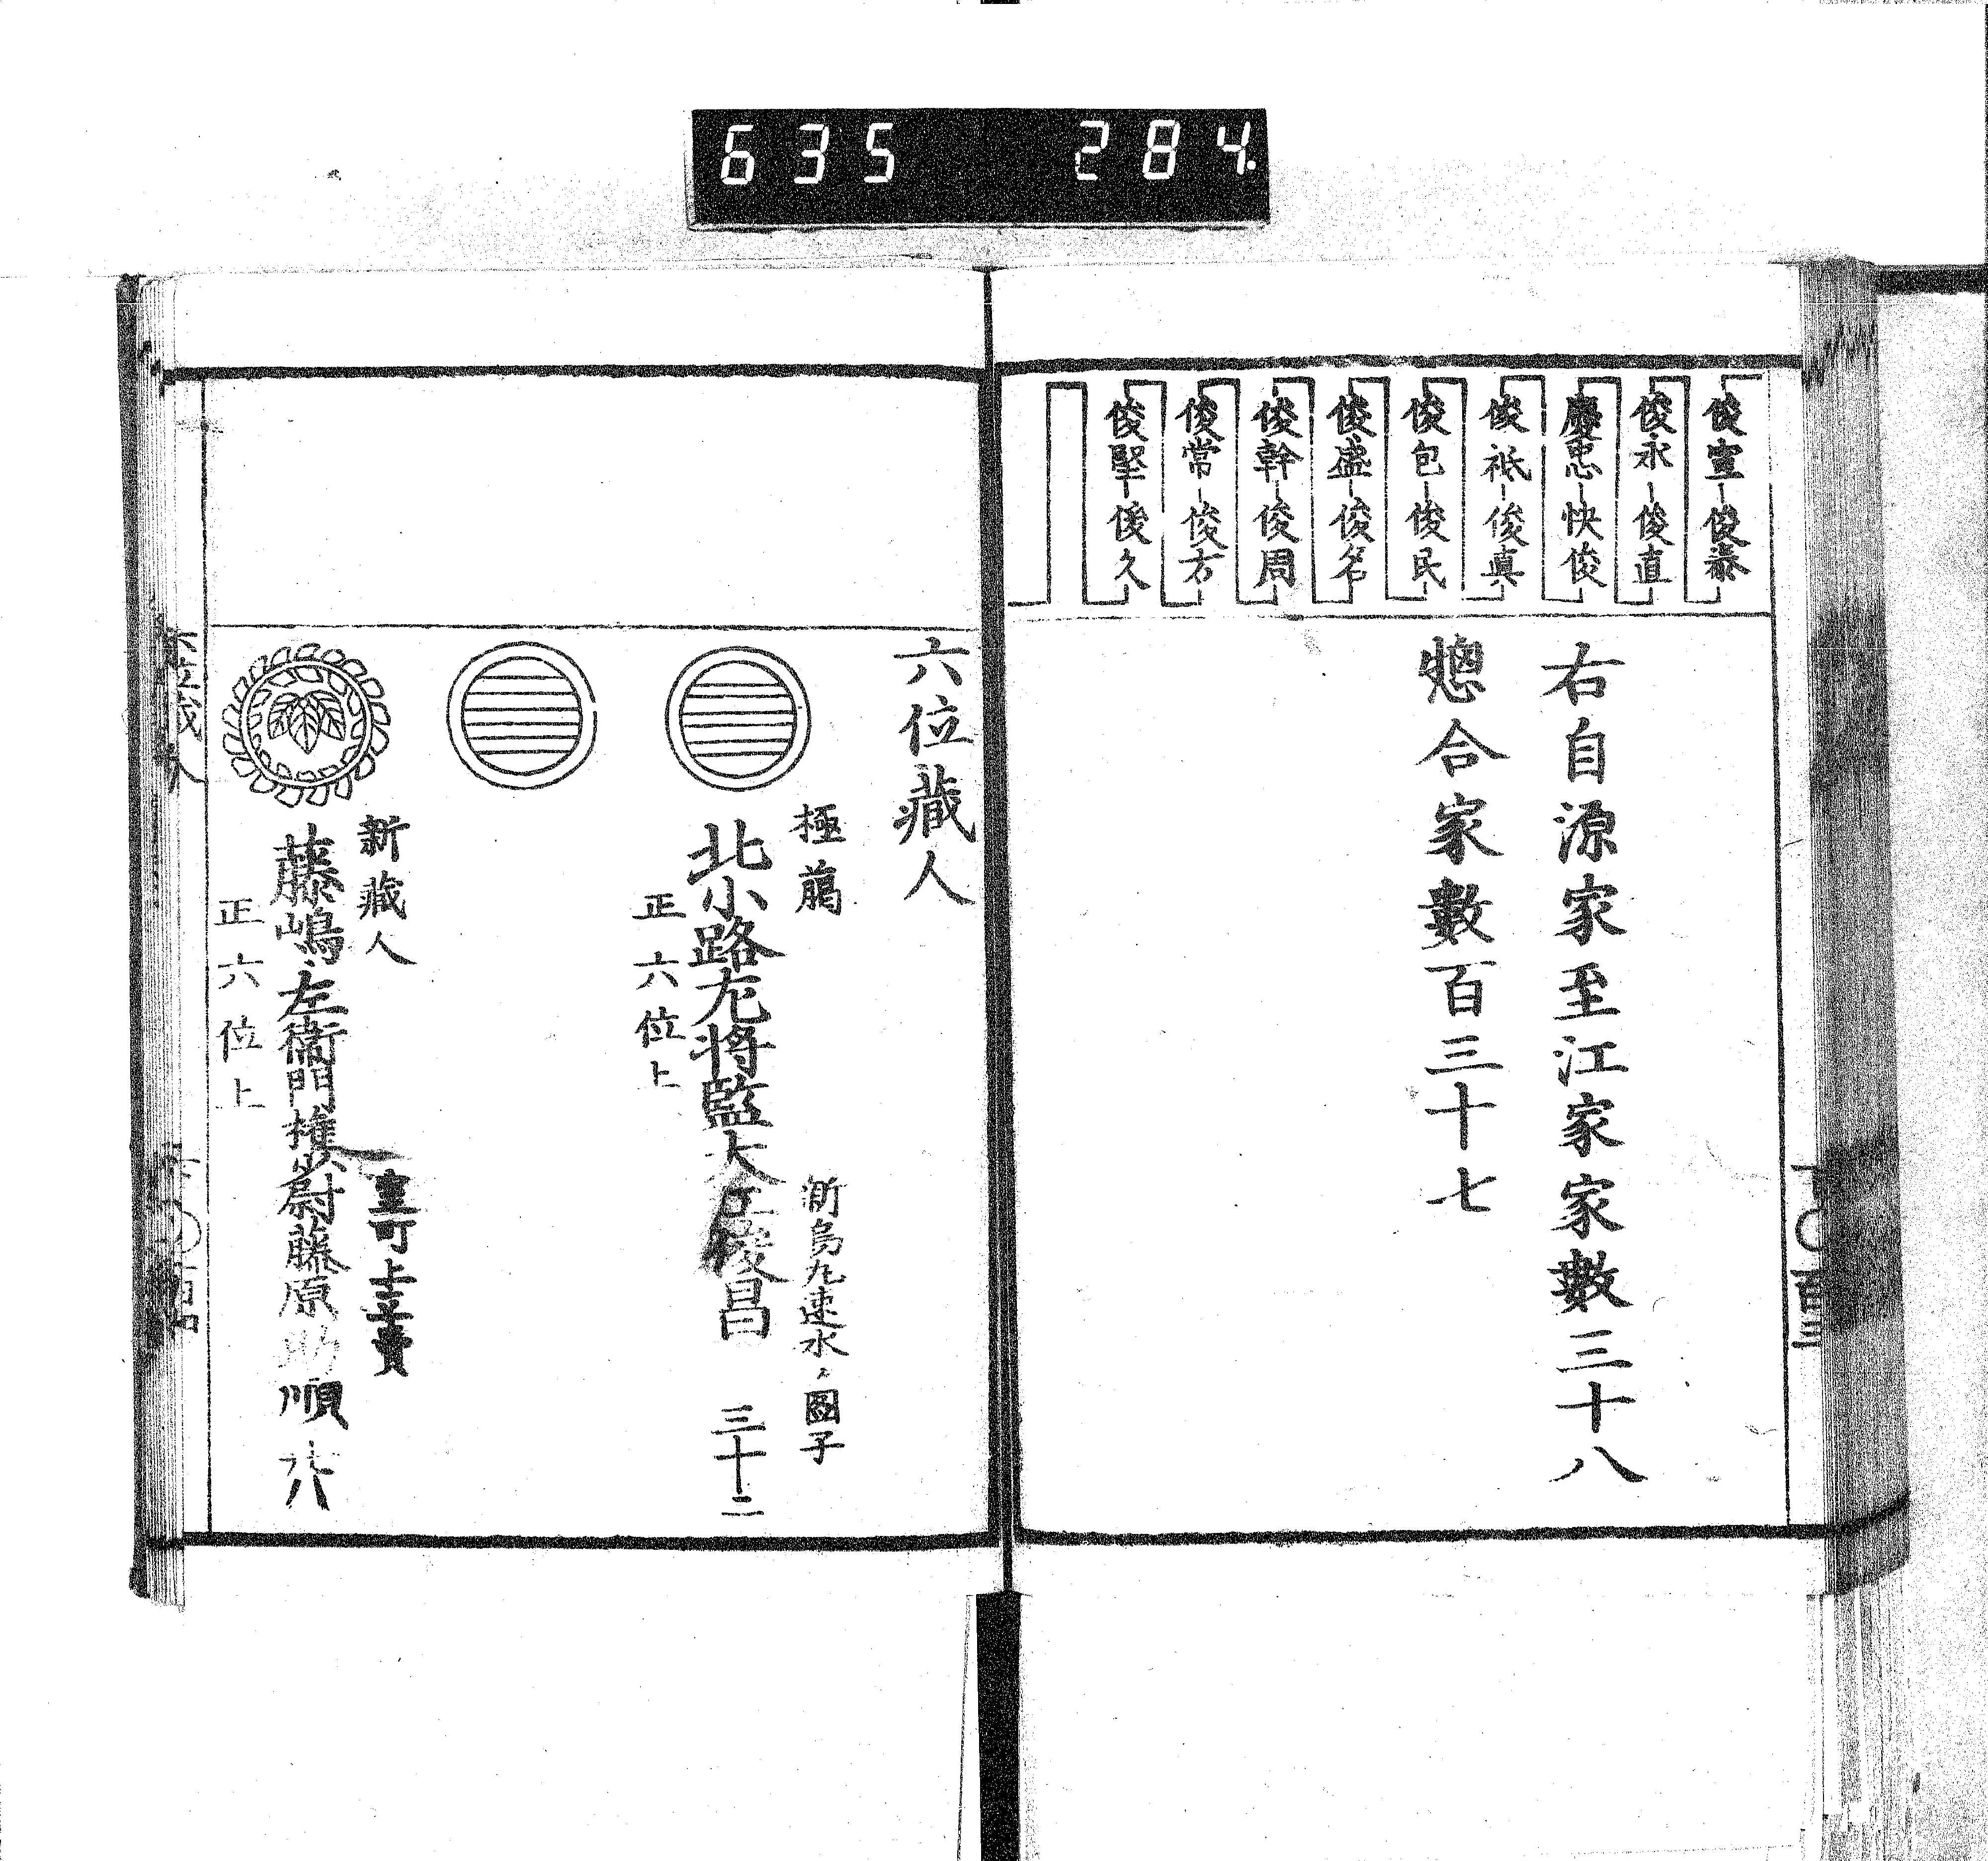 635 284
俊宣―俊泰
俊永―俊直
慶忠―快俊
俊祗―俊真
俊包―俊民
俊盛―俊名
俊幹―俊周
俊常―俊方
俊堅―俊久
右自源家至江家家數三十八
惣合家數百三十七
六位藏人
極﨟
北小路左将監大江俊昌 三十二
新烏丸速水、圖子
正六位上
新藏人
藤嶋左衛門權少尉藤原助順 六十八
室町上立賣
正六位上
六位藏人